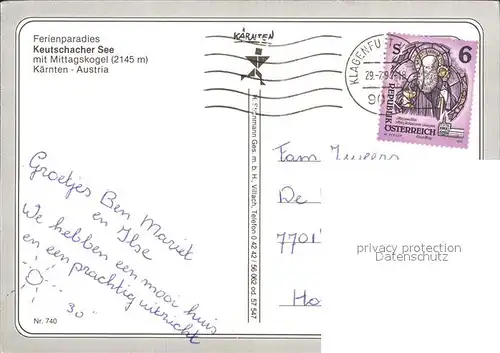 Ferienparadies
Keutschacher See
mit Mittagskogel (2145 m)
Kärnten - Austria
KÄRNTEN
KLAGENFU
29.-7.9
S 6
REPUBLIK
ÖSTERREICH
Groetjes Ben Mariet
en Ilse
We hebben een mooi huis
en een prachtig uitzicht
30°
Fam
De
7701
Ho
privacy protection
Datenschutz
Ges. m. b. H., Villach, Telefon 0 42 42 / 56 062 od. 57 547
Nr. 740